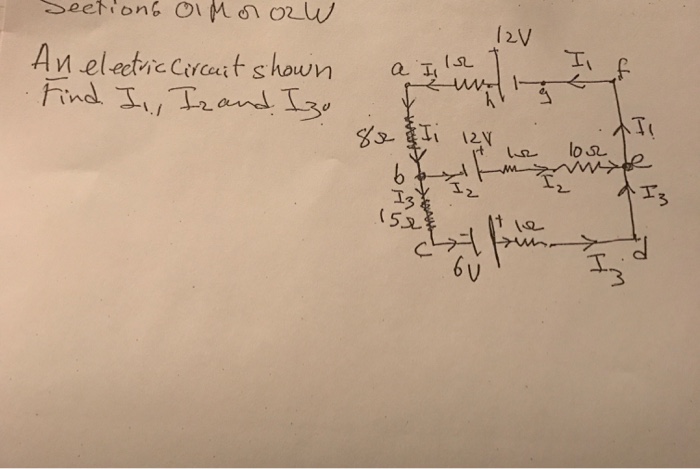 Sections 01M or 02W
An electric circuit shown
Find I₁, I₂ and I₃.
12V
a I₁ 1Ω h g I₁ f
8Ω I₁ 12V + 1Ω 10Ω I₁
b I₂ I₂ e
I₃ I₃
15Ω + 1Ω
c 6V I₃ d